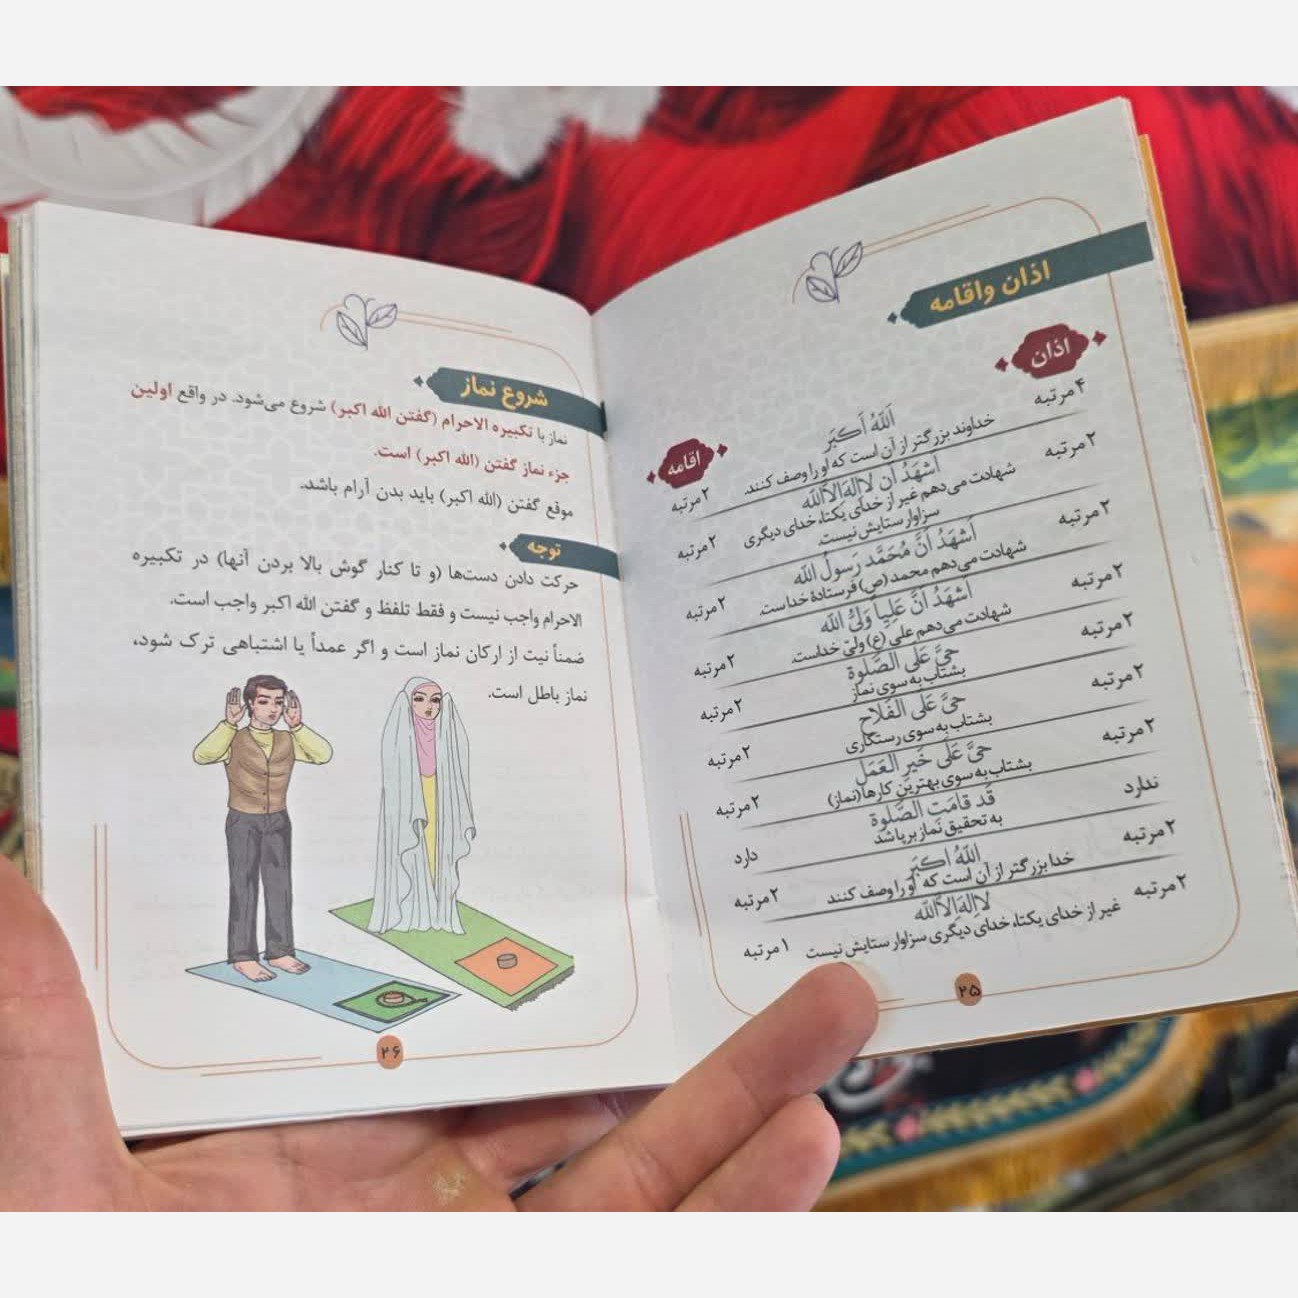 اذان واقامه
اذان
اقامه
۴ مرتبه
اَللهُ اَکبَر
خداوند بزرگتر از آن است که او را وصف کنند.
۲ مرتبه
۲ مرتبه
اَشهَدُ اَن لااِلهَ اِلاَّالله
شهادت می‌دهم غیر از خدای یکتا، خدای دیگری
سزاوار ستایش نیست.
۲ مرتبه
۲ مرتبه
اَشهَدُ اَنَّ مُحَمَّد رَسولُ الله
شهادت می‌دهم محمد (ص) فرستادهٔ خداست.
۲ مرتبه
۲ مرتبه
اَشهَدُ اَنَّ عَلِیا وَلیُّ الله
شهادت می‌دهم علی (ع) ولیّ خداست.
۲ مرتبه
۲ مرتبه
حیَّ عَلَی الصَّلوة
بشتاب به سوی نماز
۲ مرتبه
۲ مرتبه
حیَّ عَلَی الفَلاح
بشتاب به سوی رستگاری
۲ مرتبه
۲ مرتبه
حیَّ عَلَی خَیرِ العَمَل
بشتاب به سوی بهترین کارها (نماز)
۲ مرتبه
ندارد
قَد قامَتِ الصَّلوة
به تحقیق نماز برپا شد
دارد
۲ مرتبه
اَللهُ اَکبَر
خدا بزرگتر از آن است که او را وصف کنند
۲ مرتبه
۲ مرتبه
لااِلهَ اِلاَّالله
غیر از خدای یکتا، خدای دیگری سزاوار ستایش نیست
۱ مرتبه
۲۵
شروع نماز
نماز با تکبیره الاحرام (گفتن الله اکبر) شروع می‌شود. در واقع اولین
جزء نماز گفتن (الله اکبر) است.
موقع گفتن (الله اکبر) باید بدن آرام باشد.
توجه
حرکت دادن دست‌ها (و تا کنار گوش بالا بردن آنها) در تکبیره
الاحرام واجب نیست و فقط تلفظ و گفتن الله اکبر واجب است.
ضمناً نیت از ارکان نماز است و اگر عمداً یا اشتباهی ترک شود،
نماز باطل است.
۲۶